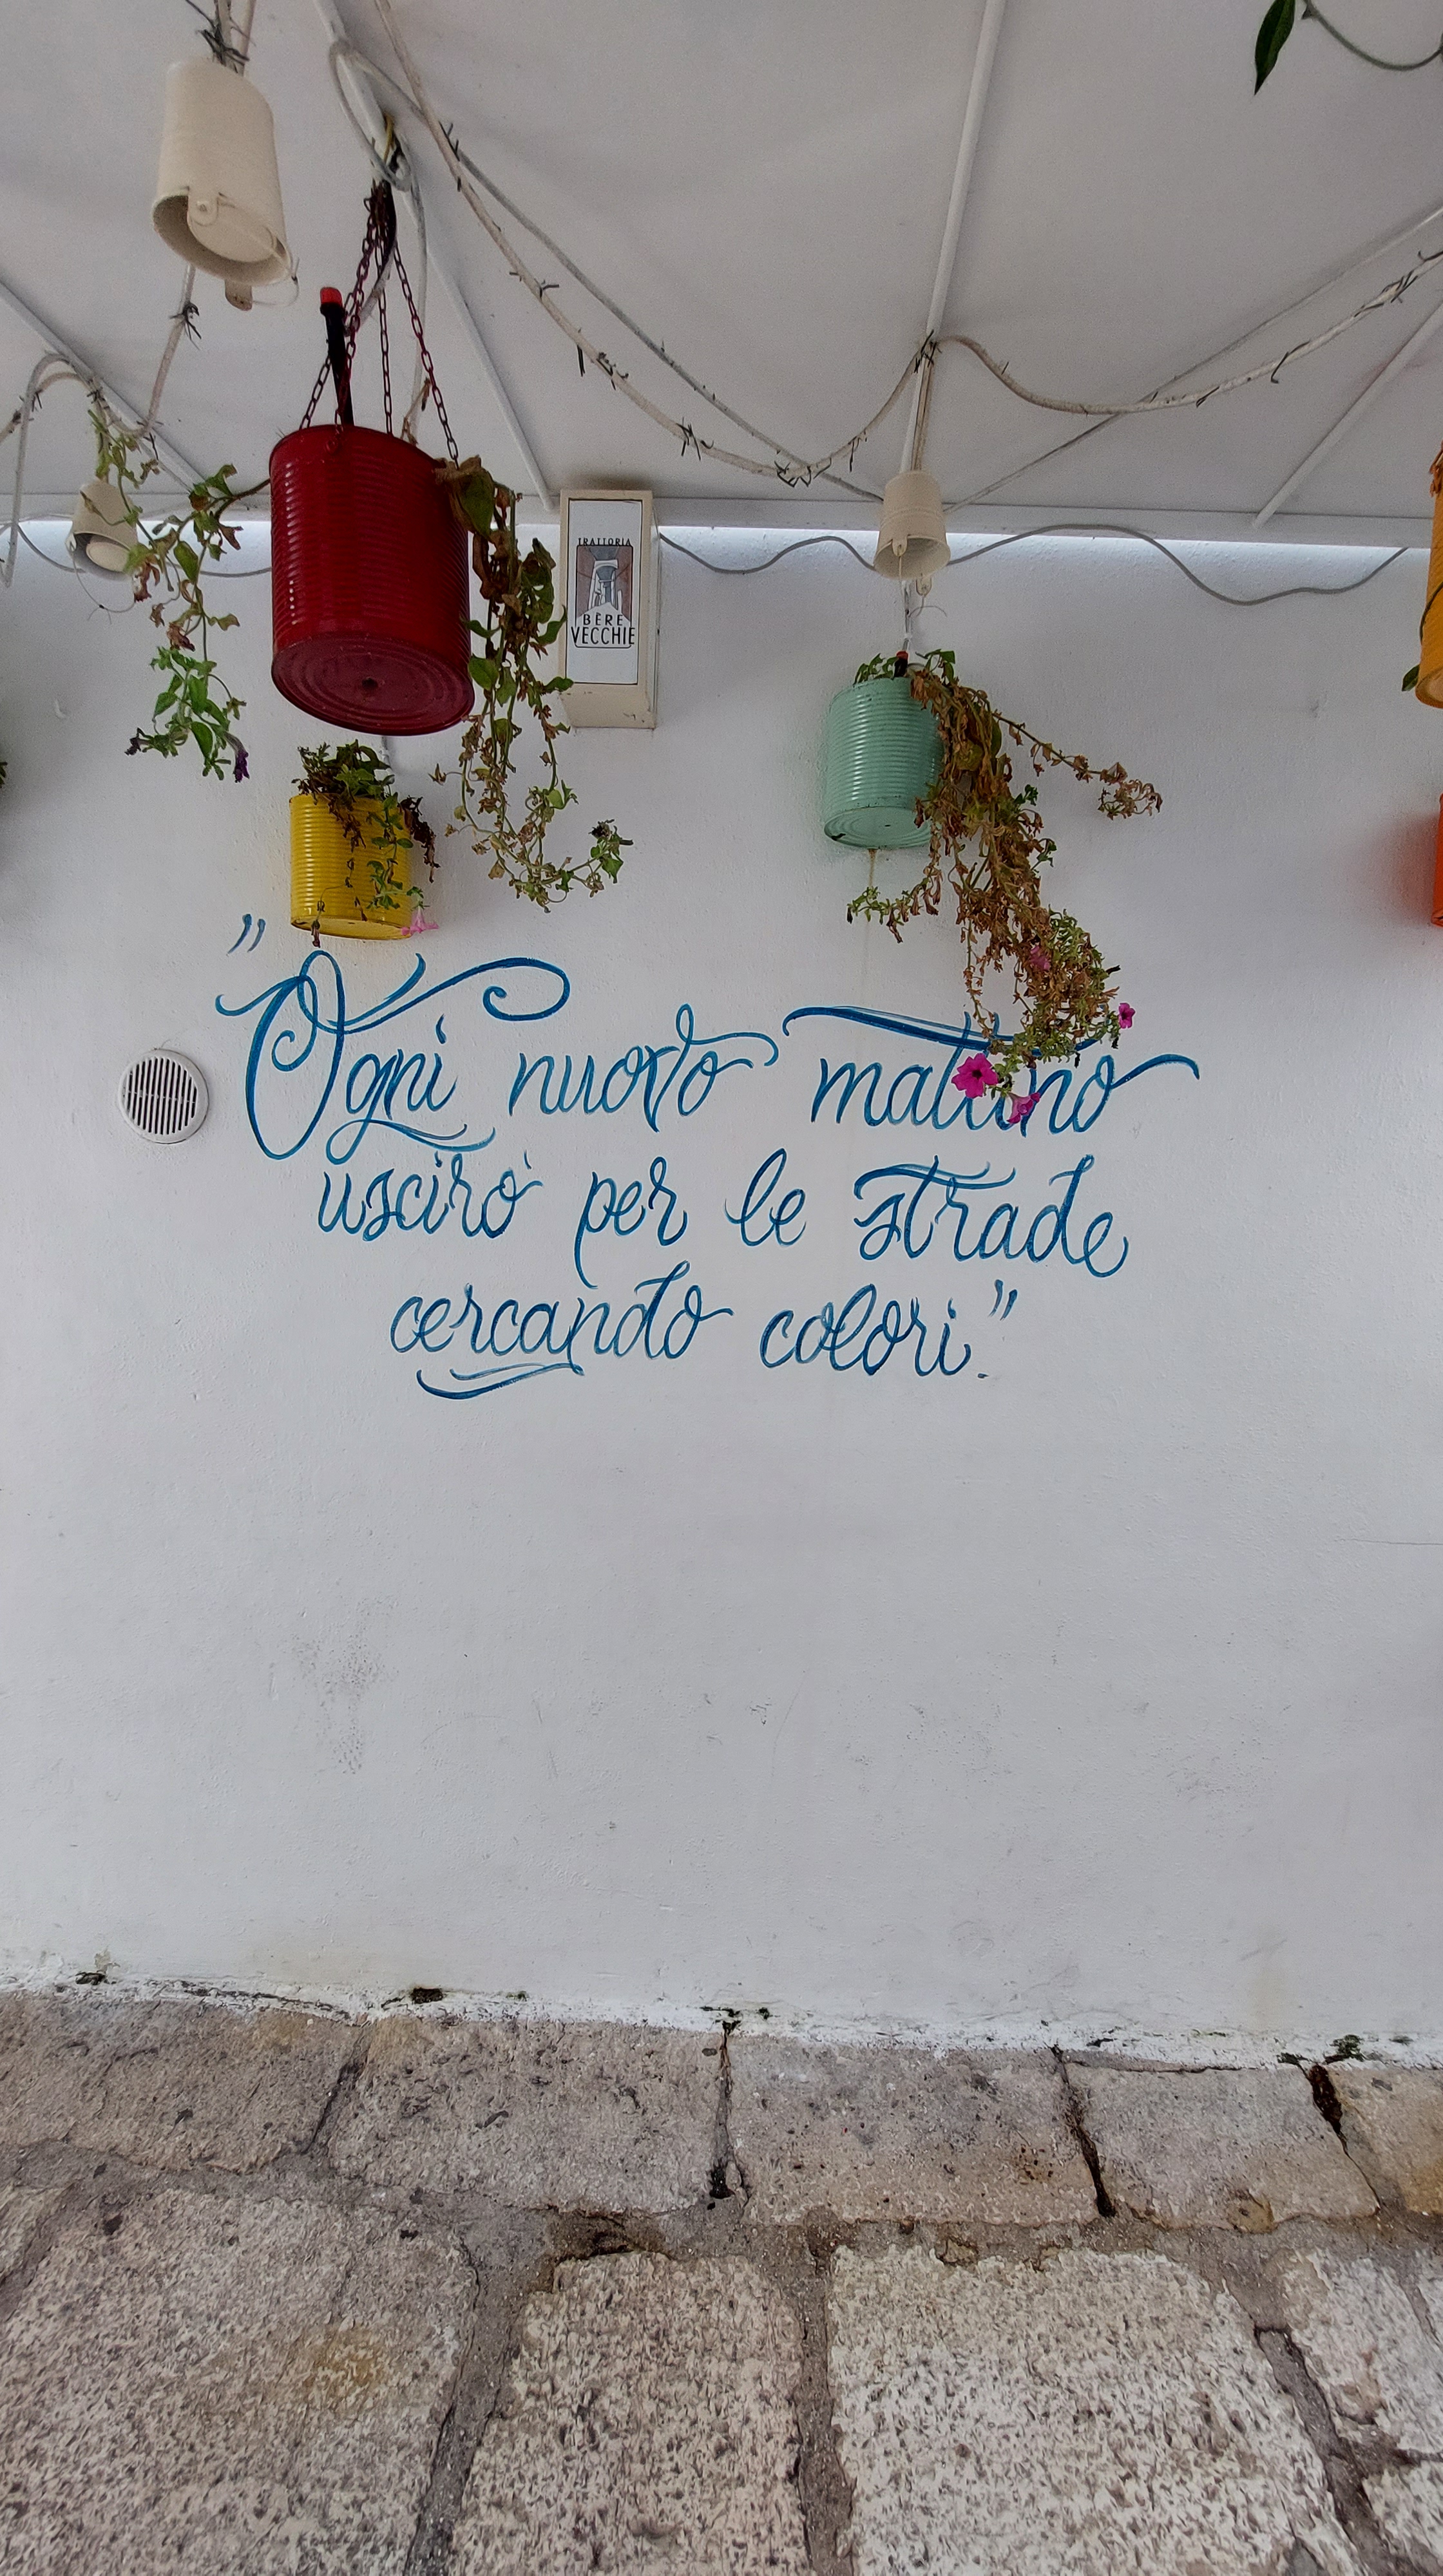 TRATTORIA
BÈRE
VECCHIE
"Ogni nuovo mattino
uscirò per le strade
cercando colori."